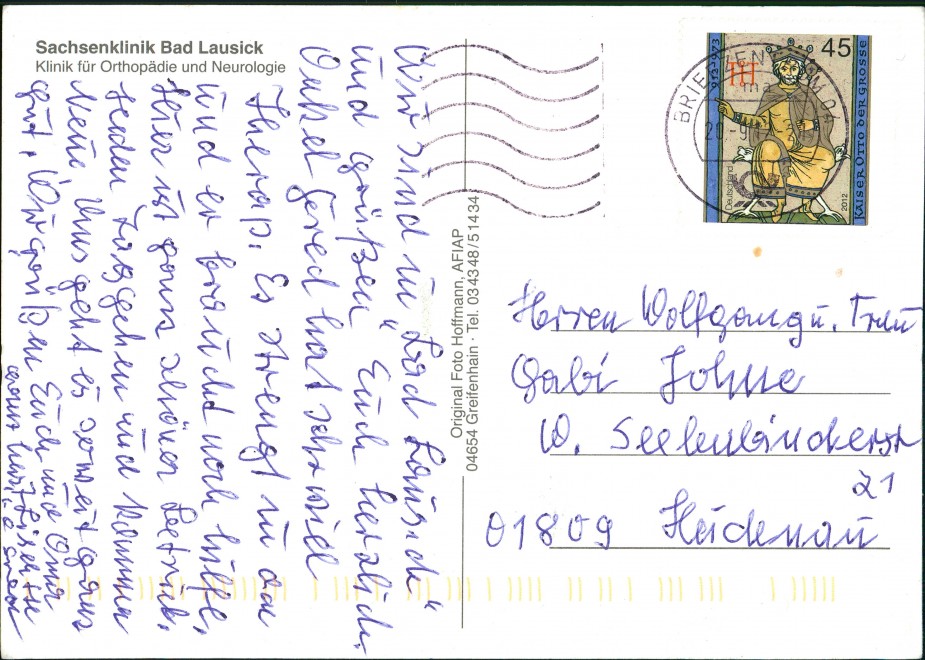 Sachsenklinik Bad Lausick
Klinik für Orthopädie und Neurologie
Wir sind in „Bad Lausick“
und grüßen Euch herzlich.
Onkel Gerd hat sehr viel
Therapi. Es strengt in an
Und er braucht noch hilfe.
Hier ist ganz schöner Betrieb.
Jeden Tag gehen und kommen
Neue. Uns geht es soweit ganz
gut. Wir grüßen Euch und Oma
ganz herzl.
Original Foto Hoffmann, AFIAP
04654 Greifenhain · Tel. 034348/51434
BRIEFZENTRUM 04
912–973
45
KAISER OTTO DER GROSSE
Deutschland
2012
Herren Wolfgang u. Frau
Gabi Johne
W. Seelenbinderstr
21
01809 Heidenau